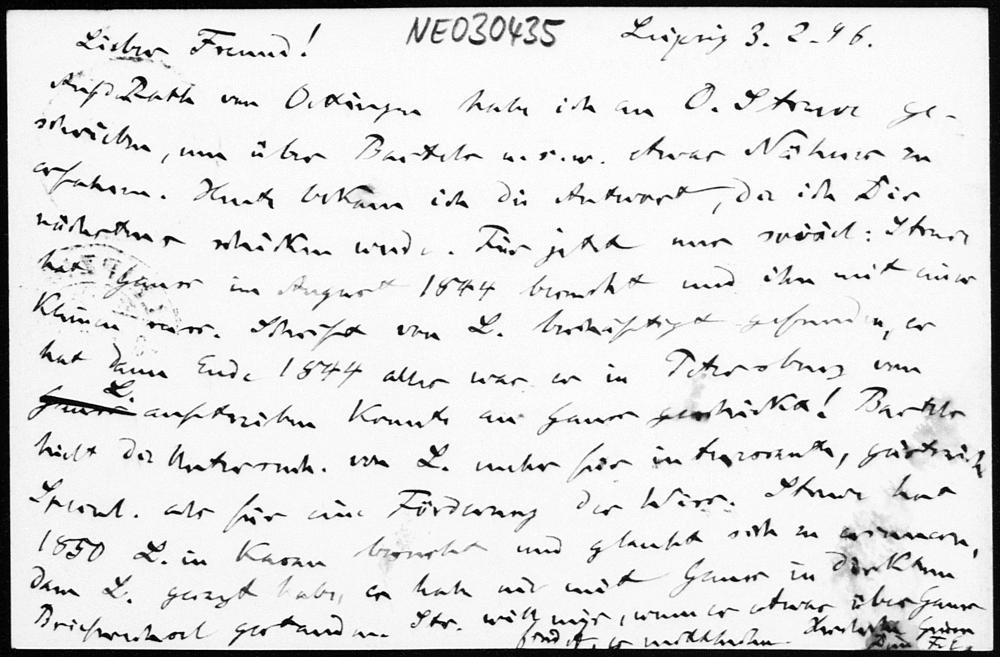 NE030435
Lieber Freund! Leipzig 3. 2. 96.
Auf Rath von Oettingen habe ich an O. Struve ge-
schrieben, um über Bartels u.s.w. etwas Näheres zu
erfahren. Heute bekam ich die Antwort, die ich Dir
nächstens schicken werde. Für jetzt nur soviel: Struve
hat Gauss im August 1844 besucht und ihn mit einer
kleinen russ. Schrift von L. beschäftigt gefunden, er
hat dann Ende 1844 alles was er in Petersburg von
L. auftreiben konnte an Gauss geschickt! Bartels
hielt die Untersuch. von L. mehr für interessante, geistreiche
Specul. als für eine Förderung der Wiss. Struve hat
1850 L. in Kasan besucht und glaubt sich zu erinnern,
dass L. gesagt habe, er habe nie mit Gauss in direktem
Briefwechsel gestanden. Str. will mir, wenn er etwas über Gauss
findet, es mittheilen. Herzliche Grüsse
Dein